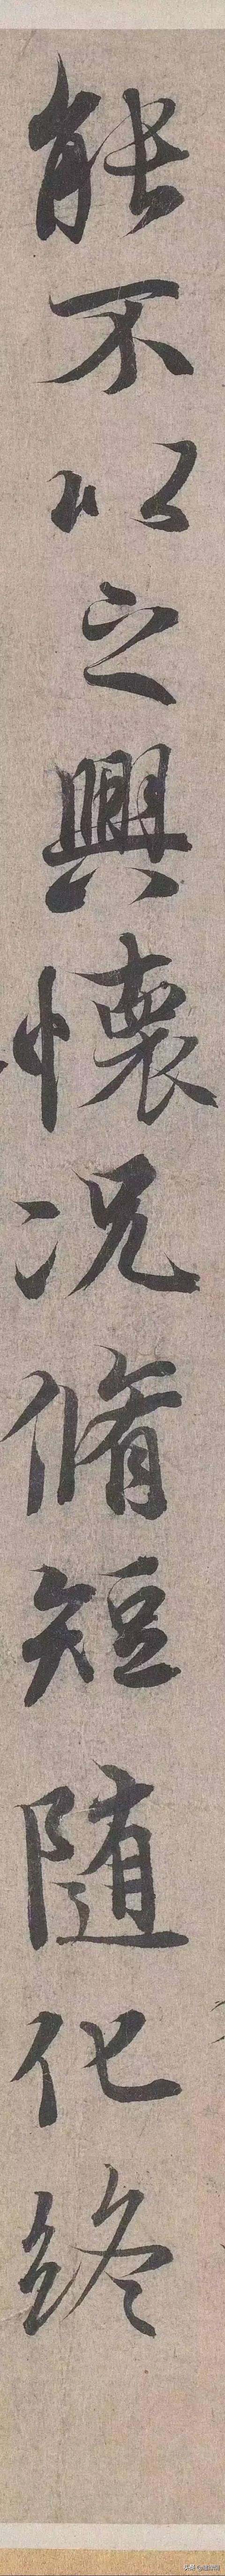 能不以之興懷況脩短随化終